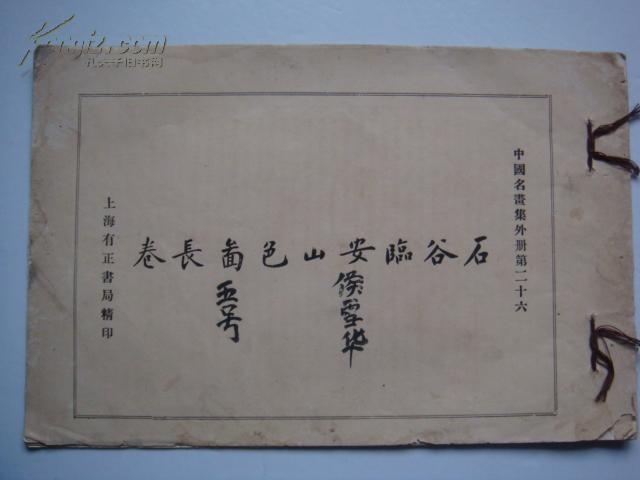 中國名畫集外册第二十六
石谷臨安山色啚長卷
侯雪华
五号
上海有正書局精印
kongfz.com
孔夫子旧书网